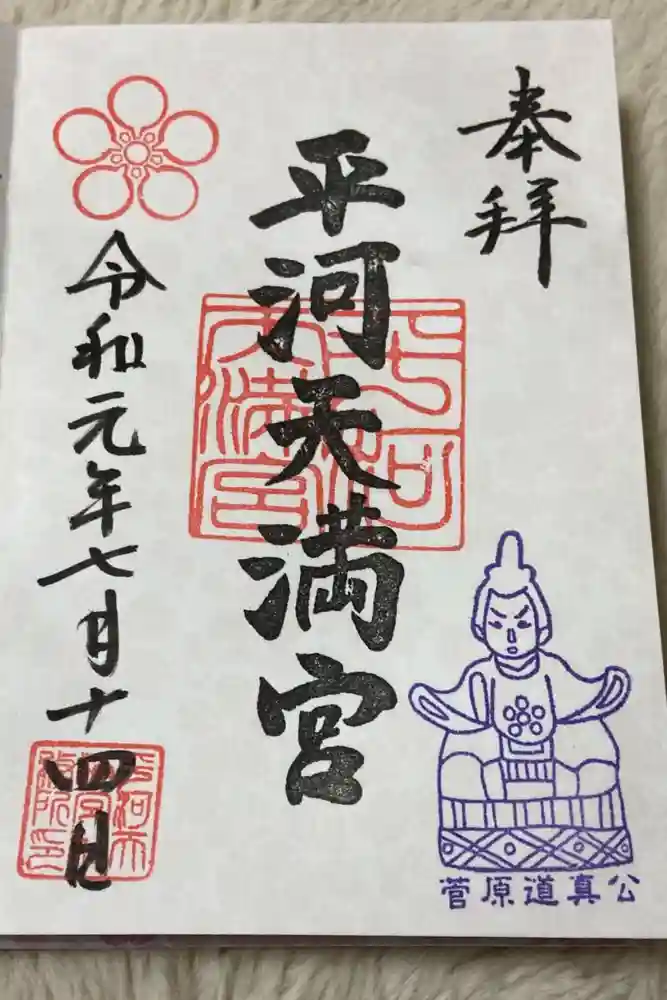 奉拝
平河天満宮
平河
天満宮
令和元年七月十四日
菅原道真公